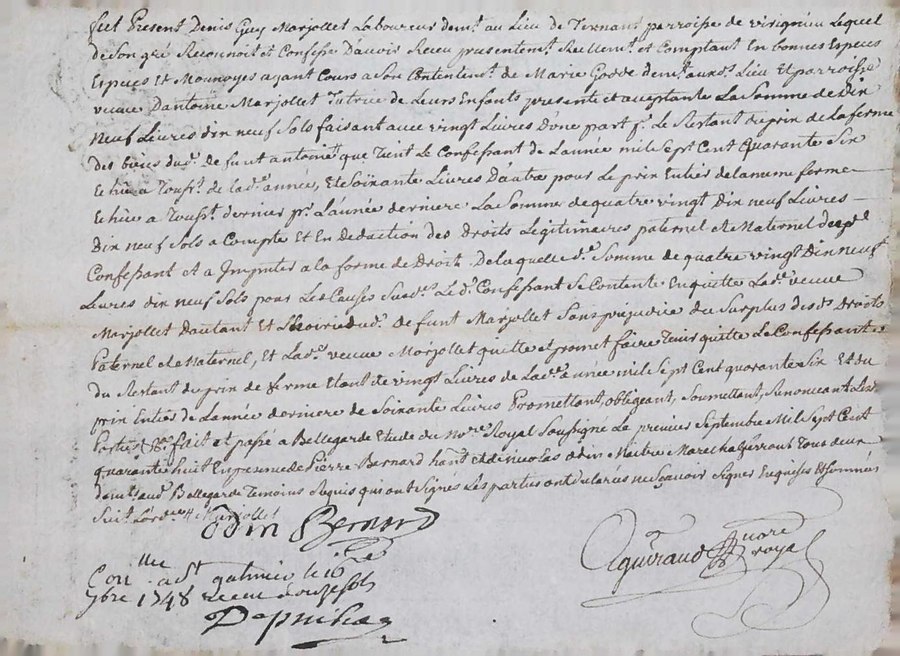 fut Present Denis Guy Marjollet Laboureur demt. au Lieu de Ternant parroisse de virignieu Lequel
de son gré Reconnoit et Confesse Davoir Receu presentemt. Reellemt. et Comptant En bonnes Especes
Especes Et Monnoyes ayant Cours a Son Contentemt. de Marie Godde demt. aud. Lieu Et parroisse
veuve Dantoine Marjollet Tutrice de Leurs Enfants presente et aceptante La Somme de Dix
Neuf Livres dix neuf Sols faisant avec vingt Livres D'une part pr. Le Restant du prix de la ferme
des biens dud. defunt antoine que Tient Le Confessant de Lannée mil Sept Cent Quarante Six
Echüe a Toussts. de lad. année, Et Soixante Livres D'autre pour Le prix Entier de la meme ferme
Echüe a Tousst. dernier pr. L'année derniere La Somme de quatre vingt Dix neuf Livres
Dix neuf Sols a Compte Et En Deduction des Droits Legitimaires paternel et Maternel dud.
Confessant et a Imputer a la forme de Droit. De laquelle de. Somme de quatre vingt Dix neuf
Livres dix neuf Sols pour Les Causes Susdes. Led. Confessant Se Contente En quitte Lade. veuve
Marjollet Dautant Et Lhoirie dud. defunt Marjollet Sans prejudice du Surplus desd. Droits
Paternel et Maternel, Et Lade. veuve Marjollet quitte et promet faire Tenir quitte Le Confessant
du Restant du prix de ferme Etant de vingt Livres de Lade. année mil Sept Cent quarante Six Et du
prix Entier de Lannée derniere de Soixante Livres Promettant, obligeant, Soumettant, Renonceant Les
Parties &c. fait et passé a Bellegarde Etude du Nore. Royal Soussigné Le premier Septembre Mil Sept Cent
quarante huit En presence de Pierre Bernard hant. et de Nicolas Odin Maitre Marechal ferrant Tous deux
demts. aud. Bellegarde Temoins Requis qui ont Signés Les parties ont declarés ne Sçavoir Signer Enquises Et Sommées
Suivt. Lordce. Marjollet
Odin Bernard
Aguiraud Nore royal
Conlle a St galmier le 16
7bre 1748 Receu douze sols